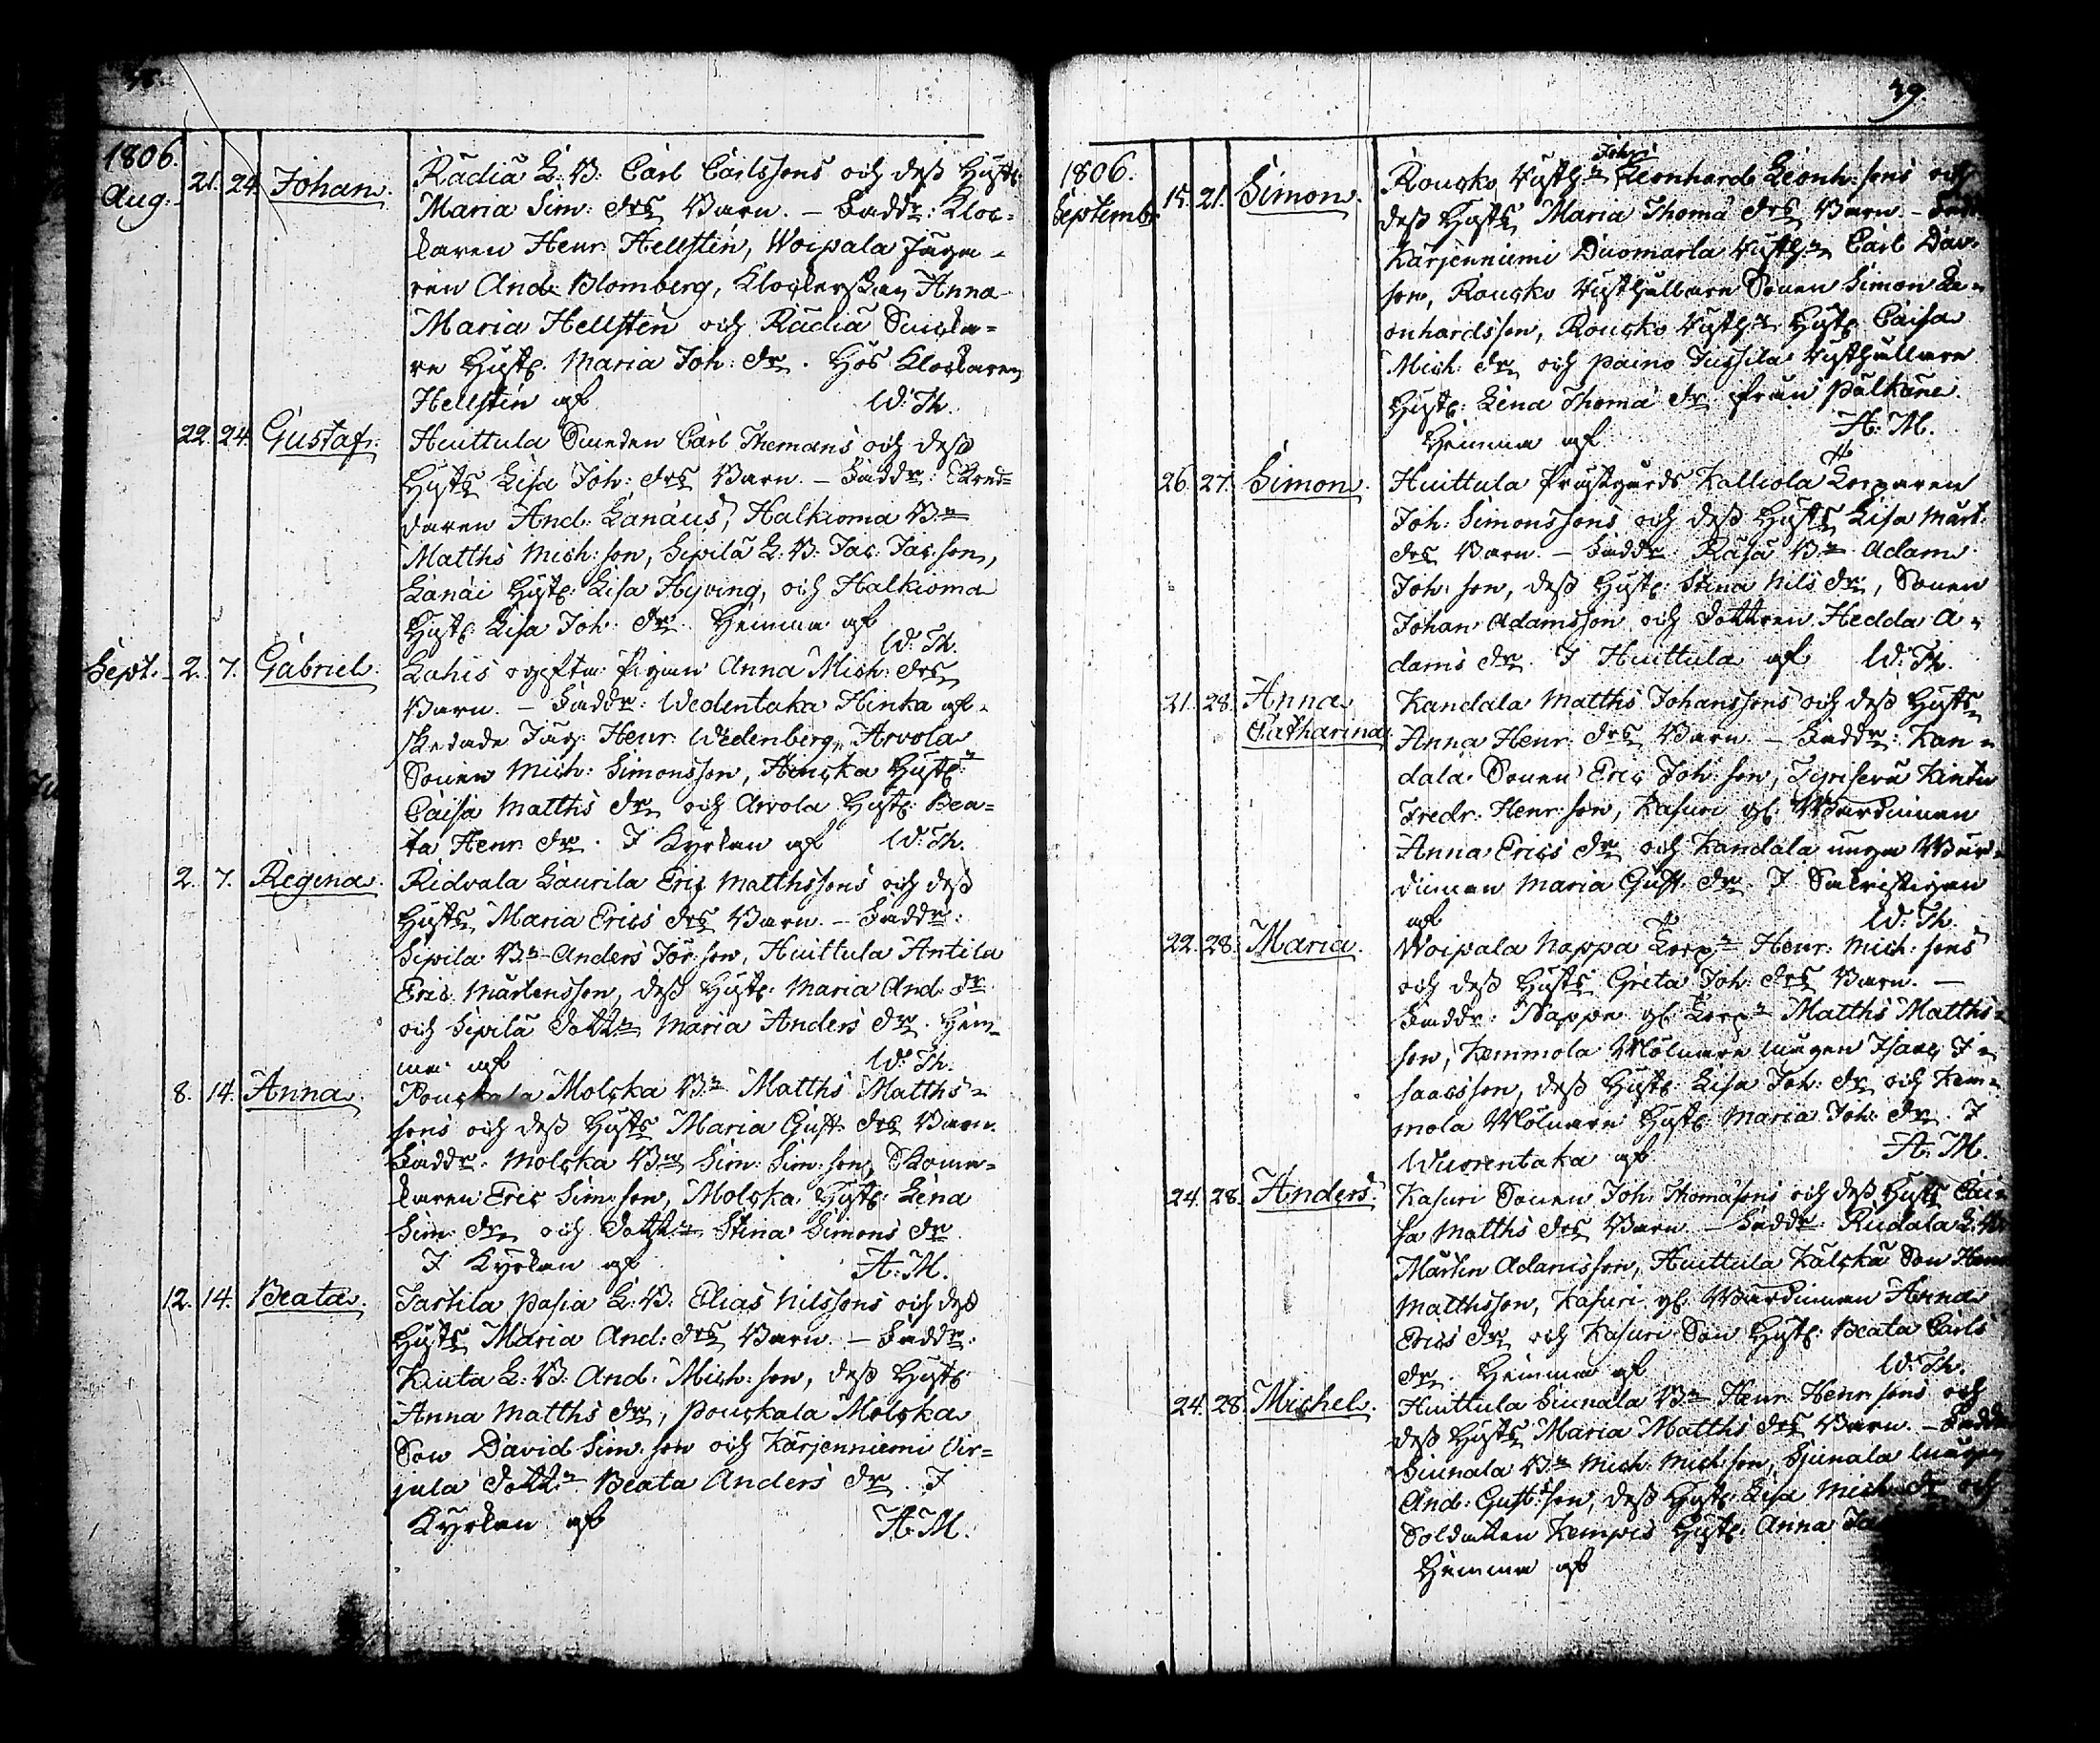 1806.
Aug. 21. 24. Johan. Rädiä L: B: Carl Carlssons och dess Hustr.
Maria Sim: drs Barn. – Faddr: Kloc-
karen Henr. Hellstén, Woipala Jäga-
ren And. Blomberg, Klockerskan Anna
Maria Hellstén och Rädiä Smeka-
re Hust: Maria Joh: dr. Hos Klockaren
Hellstén af W: Th.
22. 24. Gustaf. Huittula Smeden Carl Themans och dess
Hustrs Lisa Joh: drs Barn. – Faddr:
daren And: Lanaeus, Halkioma Bn
Matths Mich: son, Sipilä L: B: Jac: Jac: son,
Lanaei Hust: Lisa Hyving, och Halkioma
Hust: Lisa Joh: dr. Hemma af
W: Th.
Sept. 2. 7. Gabriel. Lahis ogifta Pigan Anna Mich: drs
Barn. – Faddr: Wedentaka Hinka af-
skedade Jäg: Henr: Wedenberg, Arvola
Sonen Mich: Simonsson, Hinka Hust:
Caisa Matths dr och Arvola Hust: Bea-
ta Henr: dr. I Kyrkan af W: Th.
2. 7. Regina. Ridvala Laurila Eric Matthssons och dess
Hustrs Maria Erics drs Barn. – Faddr:
Sipila Bn Anders Jör: son, Huittula Antila
Eric Mårtensson, dess Hust: Maria And: dr
och Sipilä dottn Maria Anders dr. Hem-
ma af W: Th.
8. 14. Anna. Pouskala Molska Bn Matths Matths-
sons och dess Hustrs Maria Gust: drs Barn.
Faddr: Molska Bn Sim: Sim: son, Skoma-
karen Eric Sim: son, Molska Hust: Lena
Sim: dr och dottn Stina Simons dr
I Kyrkan af A: M.
12. 14. Beata. Jartila Pasia L: B: Elias Nilssons och dess
Hustrs Maria And: drs Barn. – Faddr:
Kiuta L: B: And: Mich: son, dess Hustr
Anna Matths dr, Pouskala Molska
Son David Sim: son och Kärjenniemi Vir-
jula dottn Beata Anders dr. I
Kyrkan af A: M.
39
1806.
Septembr. 15. 21. Simon. Johan
Rousko Husth:n Leonhard Leonh: sons och
dess Hustrs Maria Thomae drs Barn. –
Kärjenniemi Duomarla Husth:n Carl Dav:
son, Rousko Husthållare Sonen Simon Le-
onhardsson, Rousko Husth:s Hust: Caisa
Mich: dr och Paino Jussila Husthållare
Hust: Lena Thomae dr från Pälkäne.
Hemma af A: M.
26. 27. Simon. Huittula Prästgårds Kalliola Torparen
Joh: Simonssons och dess Hustrs Lisa Mårt:
drs Barn. – Faddr: Rasa Bn Adam
Joh: son, dess Hust: Stina Nils dr, Sonen
Johan Adamsson och dottren Hedda A-
dams dr. I Huittula af W: Th.
21. 28. Anna Kandala Matths Johanssons och dess Hustrs
Catharina. Anna Henr: drs Barn. – Faddr: Kan-
dala Sonen Eric Joh: son,
Fredr: Henr: son, Kasuri gl: Wärdinnan
Anna Erics dr och Kandala unga Wär-
dinnan Maria Gust: dr. I Sakristigan
af W: Th.
22. 28. Maria. Woipala Nappa Torp:n Henr: Mich: sons
och dess Hustrs Greta Joh: drs Barn. –
Faddr: Nappa gl: Torp:n Matths Matths-
son, Kemmola Mölnare Mågen Isaac I-
saacsson, dess Hust: Lisa Joh: dr och Kem-
mola Mölnare Hust: Maria Joh: dr. I
Wuorentaka af A: M.
24. 28. Anders. Kasuri Sonen Joh: Thomaesons och dess Hustrs Cai-
sa Matths drs Barn. – Faddr: Ridala L: B:
Mårten Adamsson, Huittula Kälskä Son Henr
Matthsson, Kasuri gl: Wärdinnan Anna
Erics dr och Kasuri Son Hust: Beata Carls
dr. Hemma af W: Th.
24. 28. Michel. Huittula Siunala Bn Henr: Henr: sons och
dess Hustrs Maria Matths drs Barn. – Faddr
Siunala Bn Mich: Mich: son, Sjunala Mågen
And: Gust: son, dess Hust: Lisa Mich: dr och
Soldaten Kempes Hust: Anna
Hemma af